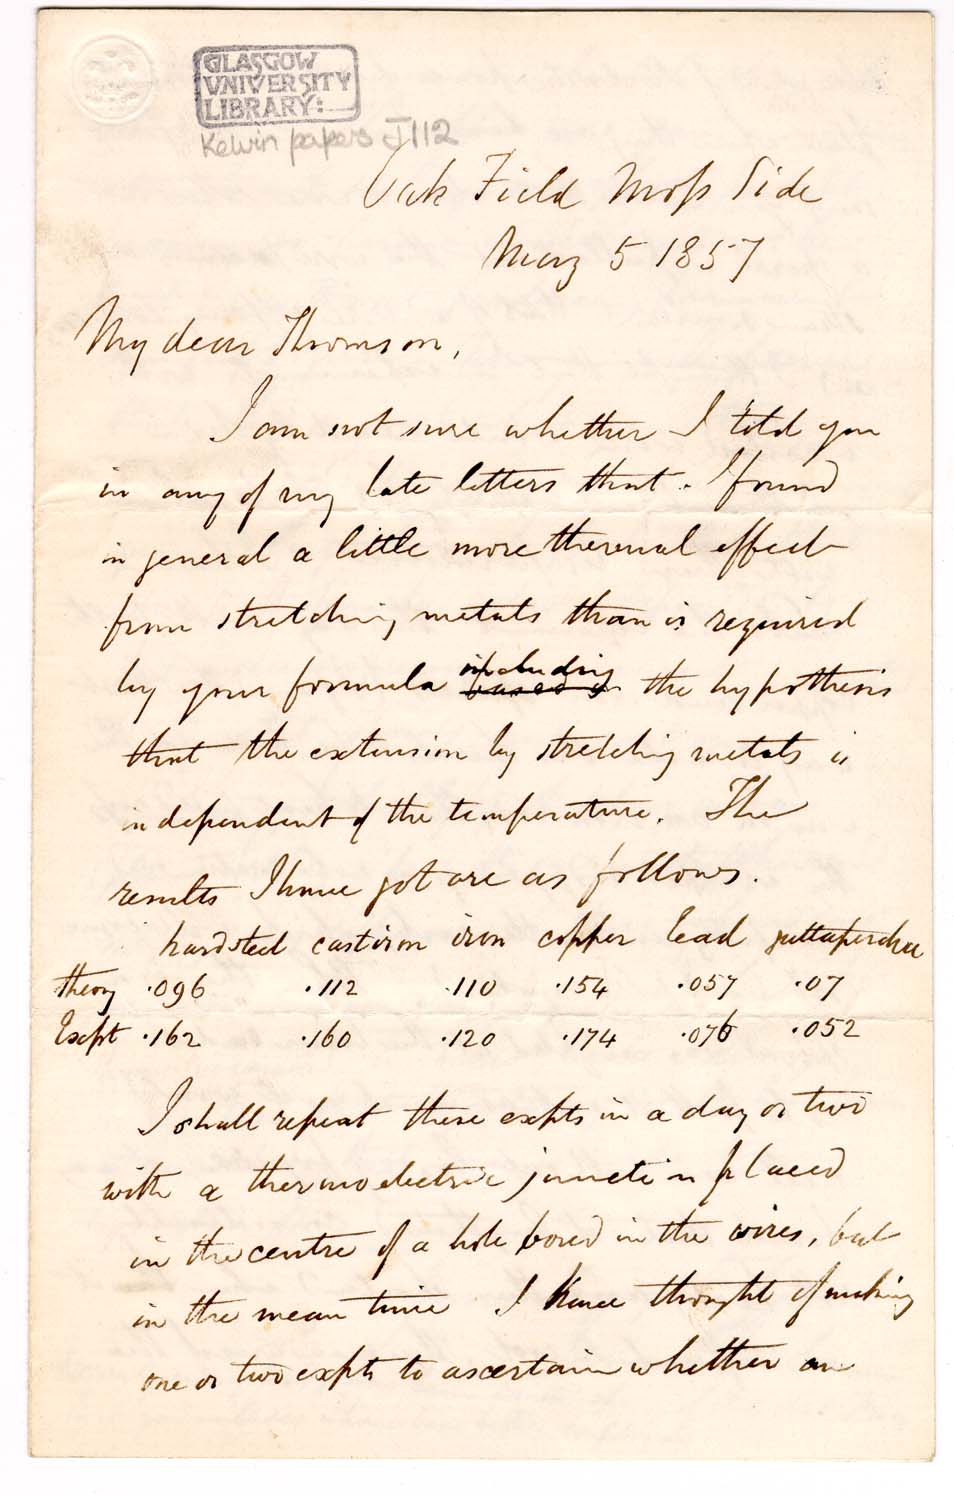 GLASGOW
UNIVERSITY
LIBRARY:
Kelvin papers J112
Oak Field Moss Side
May 5 1857
My dear Thomson,
I am not sure whether I told you
in any of my late letters that I found
in general a little more thermal effect
from stretching metals than is required
by your formula including the hypothesis
that the extension by stretching metals is
independent of the temperature. The
results I have got are as follows.
hard steel cast iron iron copper lead guttapercha
Theory .096 .112 .110 .154 .057 .07
Expt .162 .160 .120 .174 .076 .052
I shall repeat these expts in a day or two
with a thermoelectric junction placed
in the centre of a hole bored in the wires, but
in the mean time I have thought of making
one or two expts to ascertain whether an